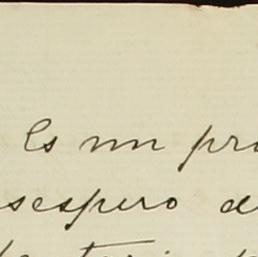 Es un pro
sespero d